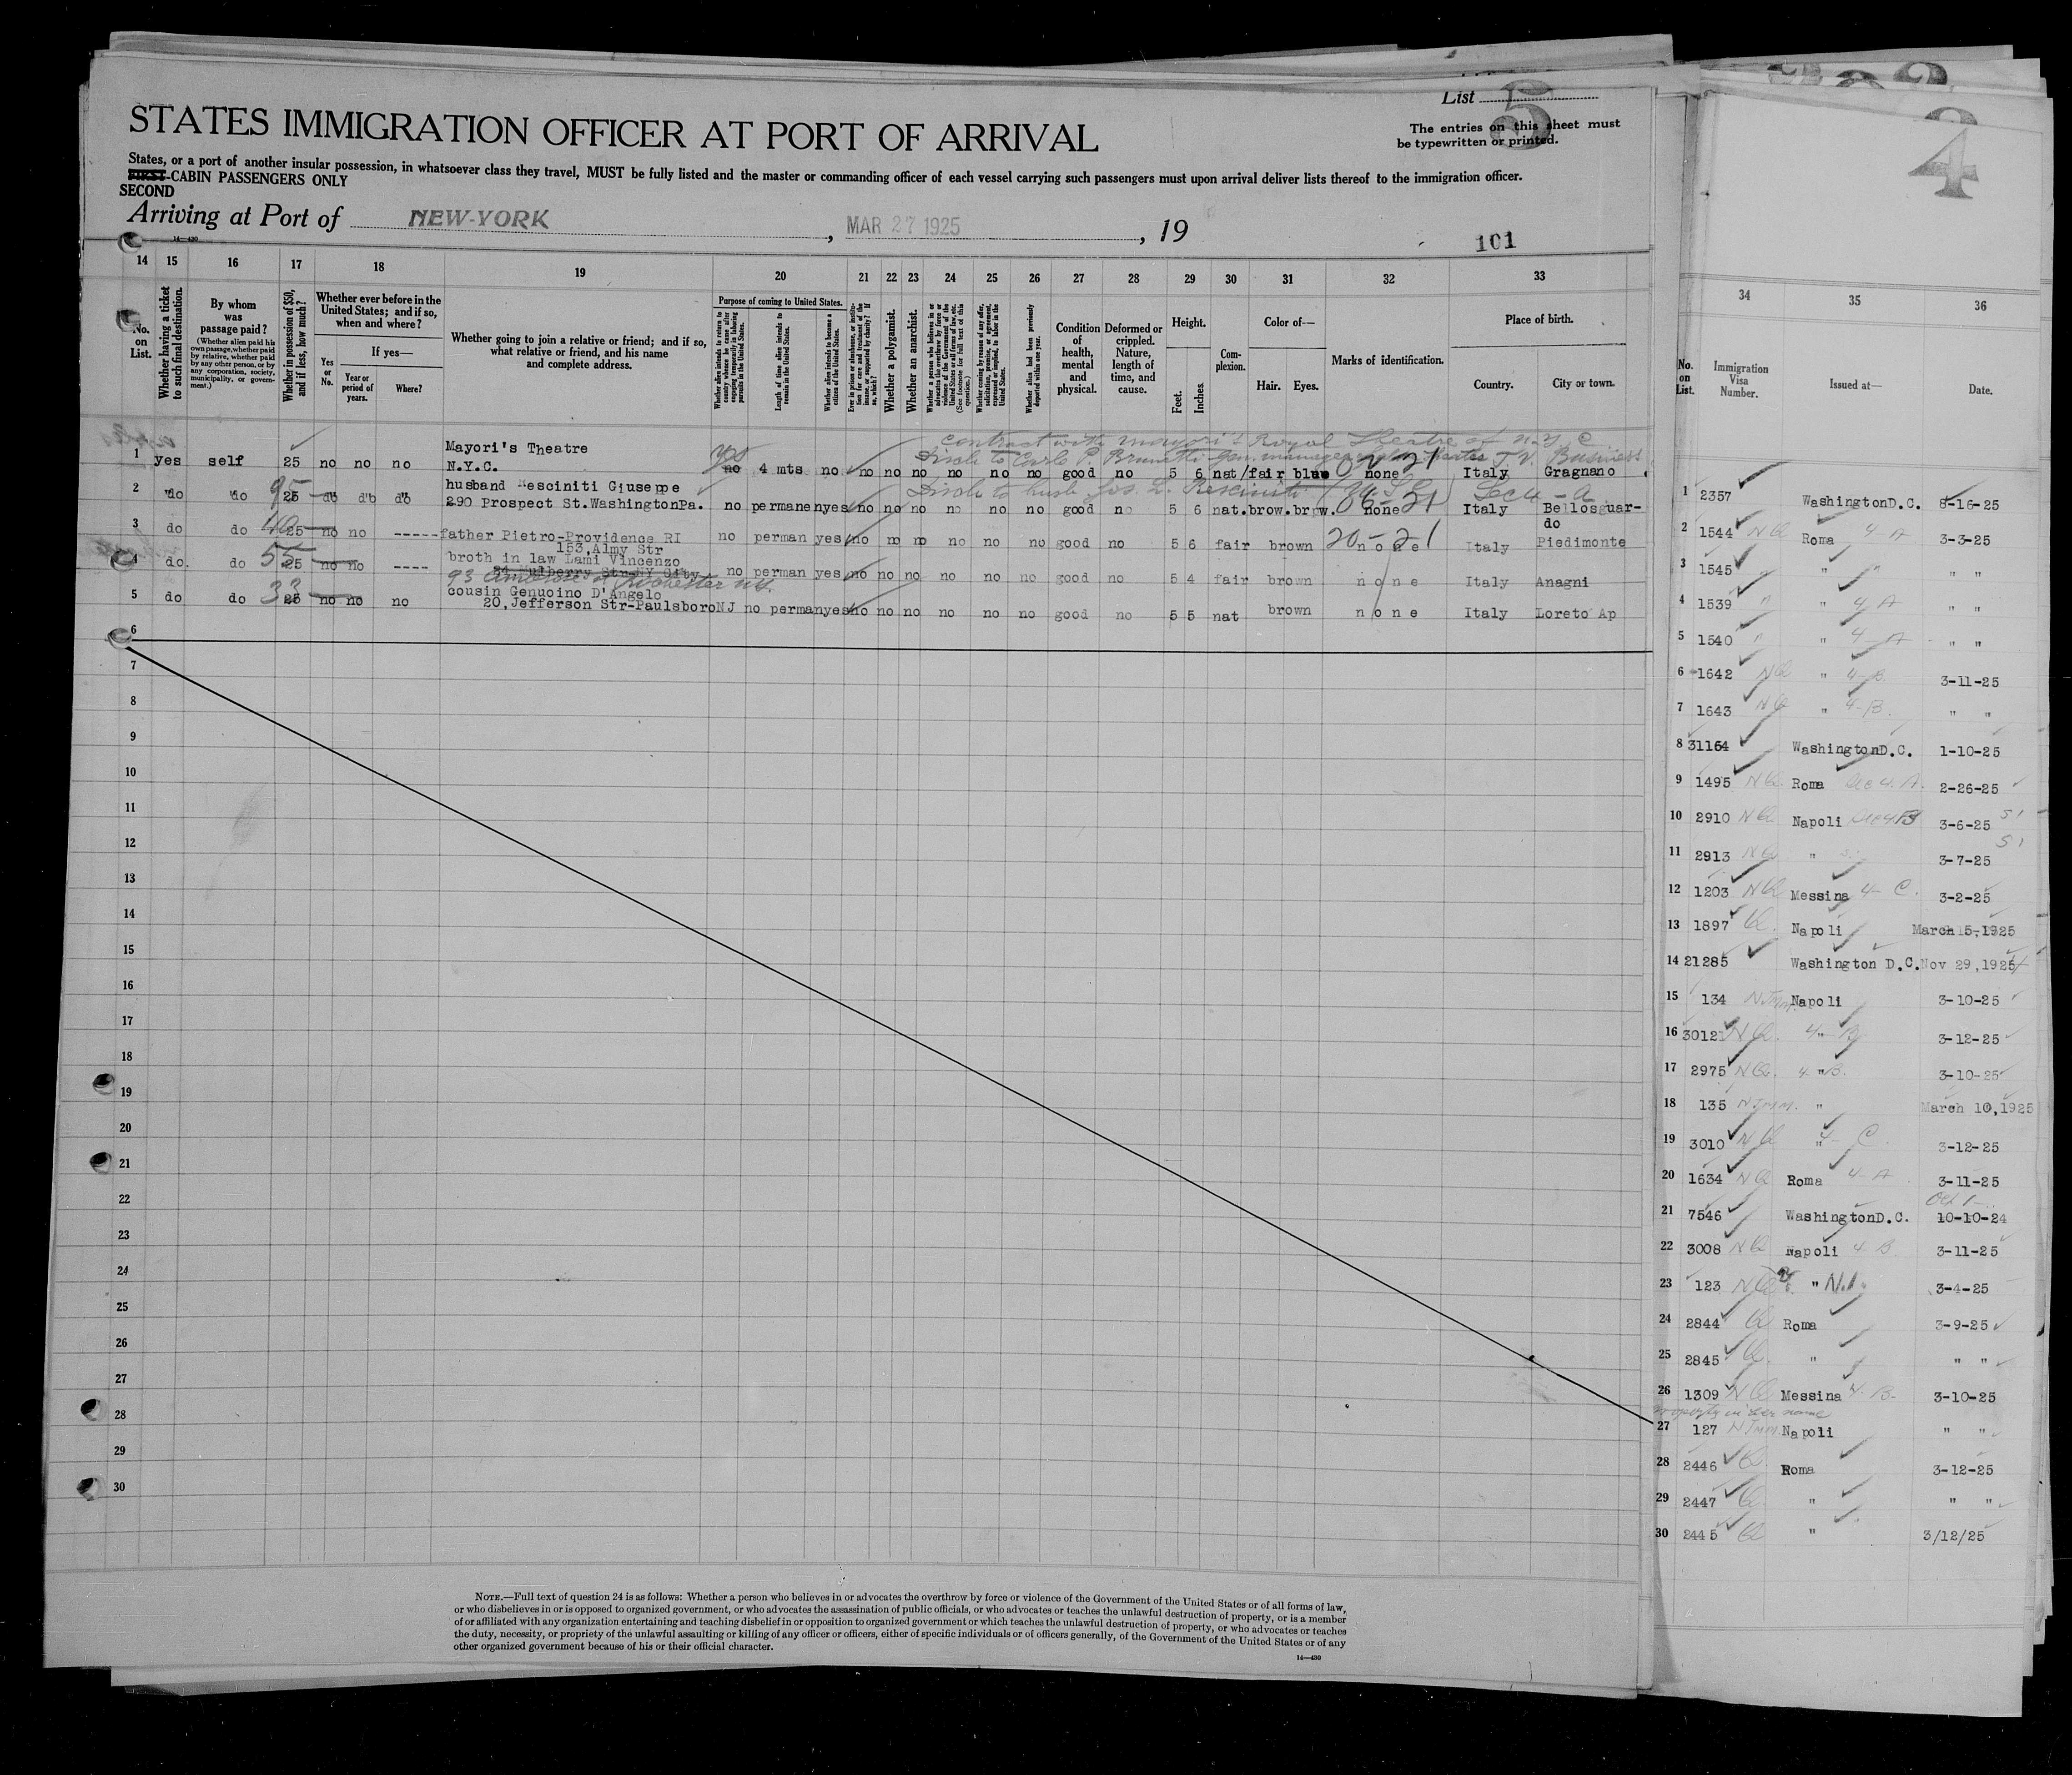 List 5
The entries on this sheet must
be typewritten or printed.
STATES IMMIGRATION OFFICER AT PORT OF ARRIVAL
States, or a port of another insular possession, in whatsoever class they travel, MUST be fully listed and the master or commanding officer of each vessel carrying such passengers must upon arrival deliver lists thereof to the immigration officer.
FIRST-CABIN PASSENGERS ONLY
SECOND
Arriving at Port of NEW-YORK , MAR 27 1925 , 19
14—430
101
4
14 15 16 17 18 19 20 21 22 23 24 25 26 27 28 29 30 31 32 33
No. on List.
Whether having a ticket to such final destination.
By whom was passage paid?
(Whether alien paid his own passage, whether paid by relative, whether paid by any other person, or by any corporation, society, municipality, or government.)
Whether in possession of $50, and if less, how much?
Whether ever before in the United States; and if so, when and where?
Yes or No.
If yes—
Year or period of years.
Where?
Whether going to join a relative or friend; and if so, what relative or friend, and his name and complete address.
Purpose of coming to United States.
Whether alien intends to return to country whence he came after engaging temporarily in laboring pursuits in the United States.
Length of time alien intends to remain in the United States.
Whether alien intends to become a citizen of the United States.
Ever in prison or almshouse, or institution for care and treatment of the insane, or supported by charity? If so, which?
Whether a polygamist.
Whether an anarchist.
Whether a person who believes in or advocates the overthrow by force or violence of the Government of the United States or all forms of law, etc. (See footnote for full text of this question.)
Whether coming by reason of any offer, solicitation, promise, or agreement, expressed or implied, to labor in the United States.
Whether alien had been previously deported within one year.
Condition of health, mental and physical.
Deformed or crippled. Nature, length of time, and cause.
Height.
Feet.
Inches.
Complexion.
Color of—
Hair. Eyes.
Marks of identification.
Place of birth.
Country.
City or town.
contract with Mayori's Royal Theatre of N.Y.C
Mayori's Theatre
1 yes self 25 no no no N.Y.C. yes no 4 mts no no no no no no no good no 5 6 nat/fair blue none Italy Gragnano
husband Resciniti Giuseppe
2 do do 95 25 do do do 290 Prospect St.WashingtonPa. no permanen yes no no no no no no good no 5 6 nat.brow.brw. none Italy Bellosguar-
do
3 do do 40 25 no no ----- father Pietro-Providence RI no perman yes no no no no no no good no 5 6 fair brown none Italy Piedimonte
153,Almy Str
broth in law Lami Vincenzo
4 do. do 55 25 no no ---- Mulberry Str NY City no perman yes no no no no no no good no 5 4 fair brown none Italy Anagni
93 Rochester NY.
cousin Genuoino D'Angelo
5 do do 33 25 no no no 20,Jefferson Str-Paulsboro NJ no perman yes no no no no no no good no 5 5 nat brown none Italy Loreto Ap
6
7
8
9
10
11
12
13
14
15
16
17
18
19
20
21
22
23
24
25
26
27
28
29
30
NOTE.—Full text of question 24 is as follows: Whether a person who believes in or advocates the overthrow by force or violence of the Government of the United States or of all forms of law,
or who disbelieves in or is opposed to organized government, or who advocates the assassination of public officials, or who advocates or teaches the unlawful destruction of property, or is a member
of or affiliated with any organization entertaining and teaching disbelief in or opposition to organized government or which teaches the unlawful destruction of property, or who advocates or teaches
the duty, necessity, or propriety of the unlawful assaulting or killing of any officer or officers, either of specific individuals or of officers generally, of the Government of the United States or of any
other organized government because of his or their official character.
14—430
34 35 36
No. on List.
Immigration Visa Number.
Issued at—
Date.
1 2357 WashingtonD.C. 8-16-25
2 1544 NQ Roma 4 A 3-3-25
3 1545 " " " "
4 1539 " " 4 A " "
5 1540 " " 4 A " "
6 1642 NQ " 4 B. 3-11-25
7 1643 NQ " 4 B. " "
8 31164 WashingtonD.C. 1-10-25
9 1495 NQ Roma 4 A. 2-26-25
10 2910 NQ Napoli 4B 3-6-25 S1
11 2913 NQ " 3-7-25 S1
12 1203 NQ Messina 4 C. 3-2-25
13 1897 Q. Napoli March 5,1925
14 21285 Washington D.C. Nov 29,1925
15 134 N Imm. Napoli 3-10-25
16 30121 NQ. 4 " B 3-12-25
17 2975 NQ. 4 " B. 3-10-25
18 135 N Imm. " March 10,1925
19 3010 NQ 4 " C. 3-12-25
20 1634 NQ Roma 4 A 3-11-25
Oct 1
21 7546 WashingtonD.C. 10-10-24
22 3008 NQ Napoli 4 B 3-11-25
23 123 NQ " 3-4-25
24 2844 Q Roma 3-9-25
25 2845 Q. " " "
26 1309 NQ Messina 4 B. 3-10-25
property in her name
27 127 N Imm Napoli " "
28 2446 Q Roma 3-12-25
29 2447 Q " " "
30 2445 Q " 3/12/25